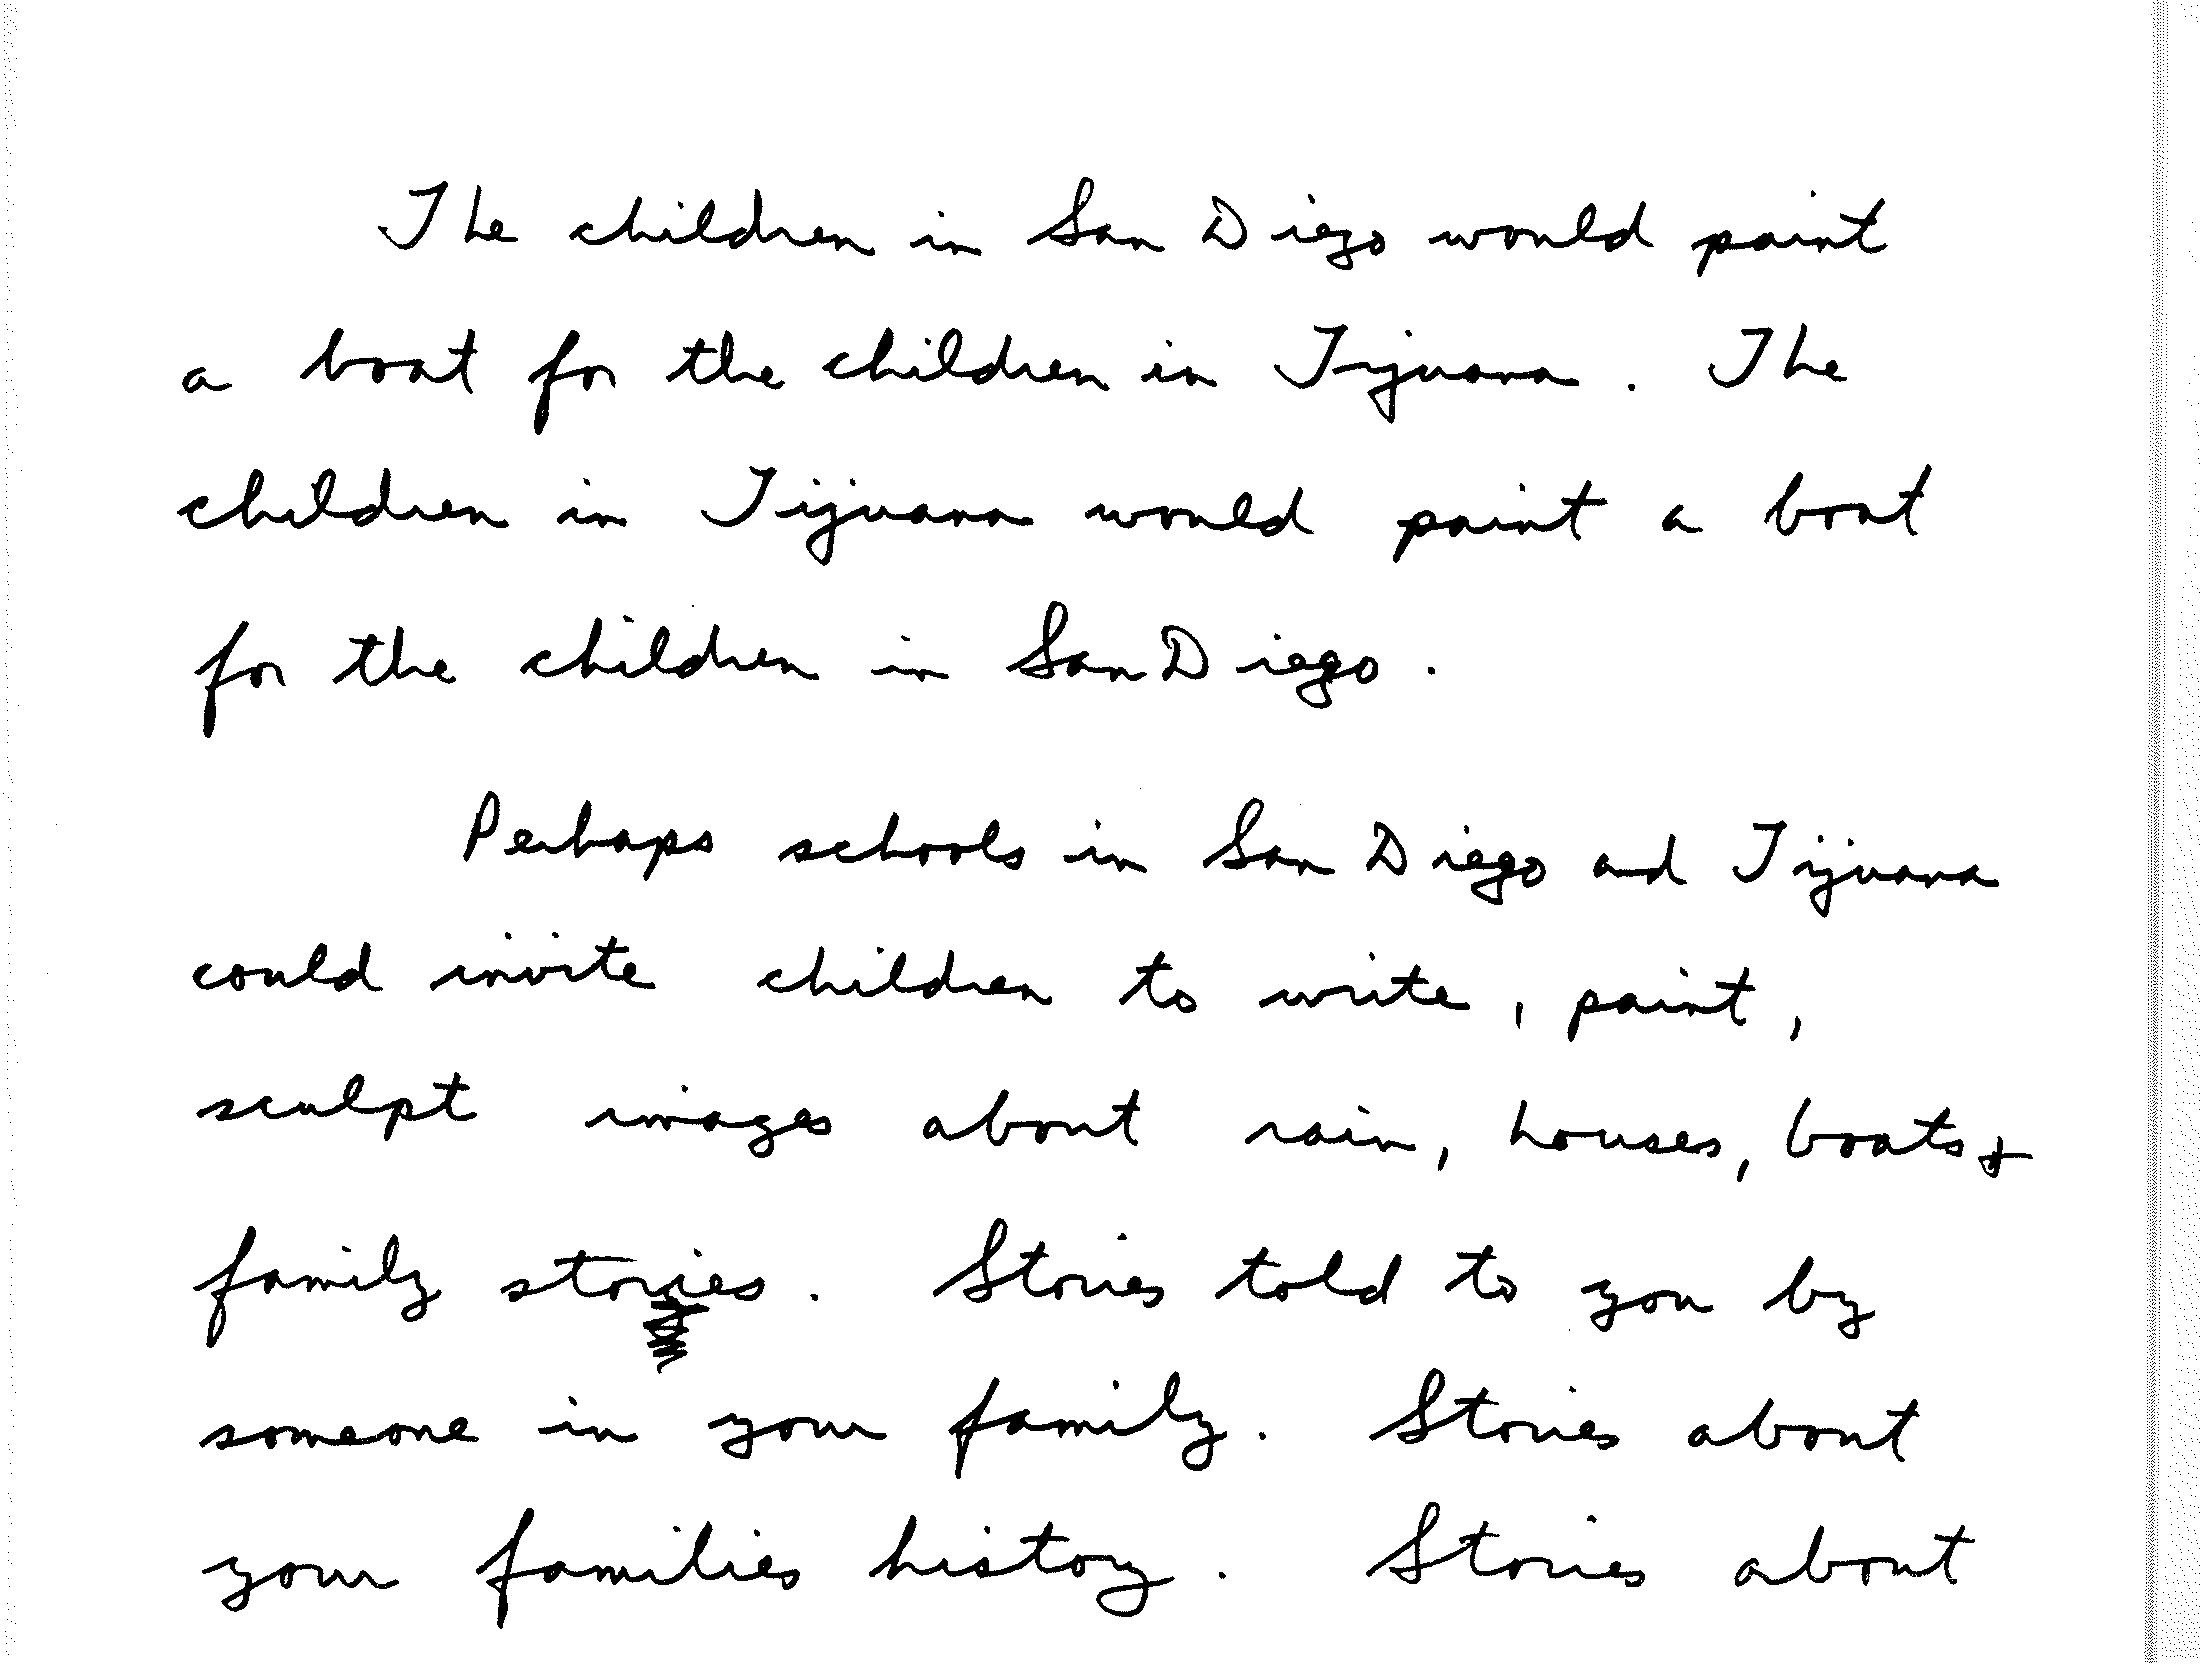 The children in San Diego would paint
a boat for the children in Tijuana. The
children in Tijuana would paint a boat
for the children in San Diego.
Perhaps schools in San Diego and Tijuana
could invite children to write, paint,
sculpt images about rain, houses, boats &
family stories. Stories told to you by
someone in your family. Stories about
your families history. Stories about